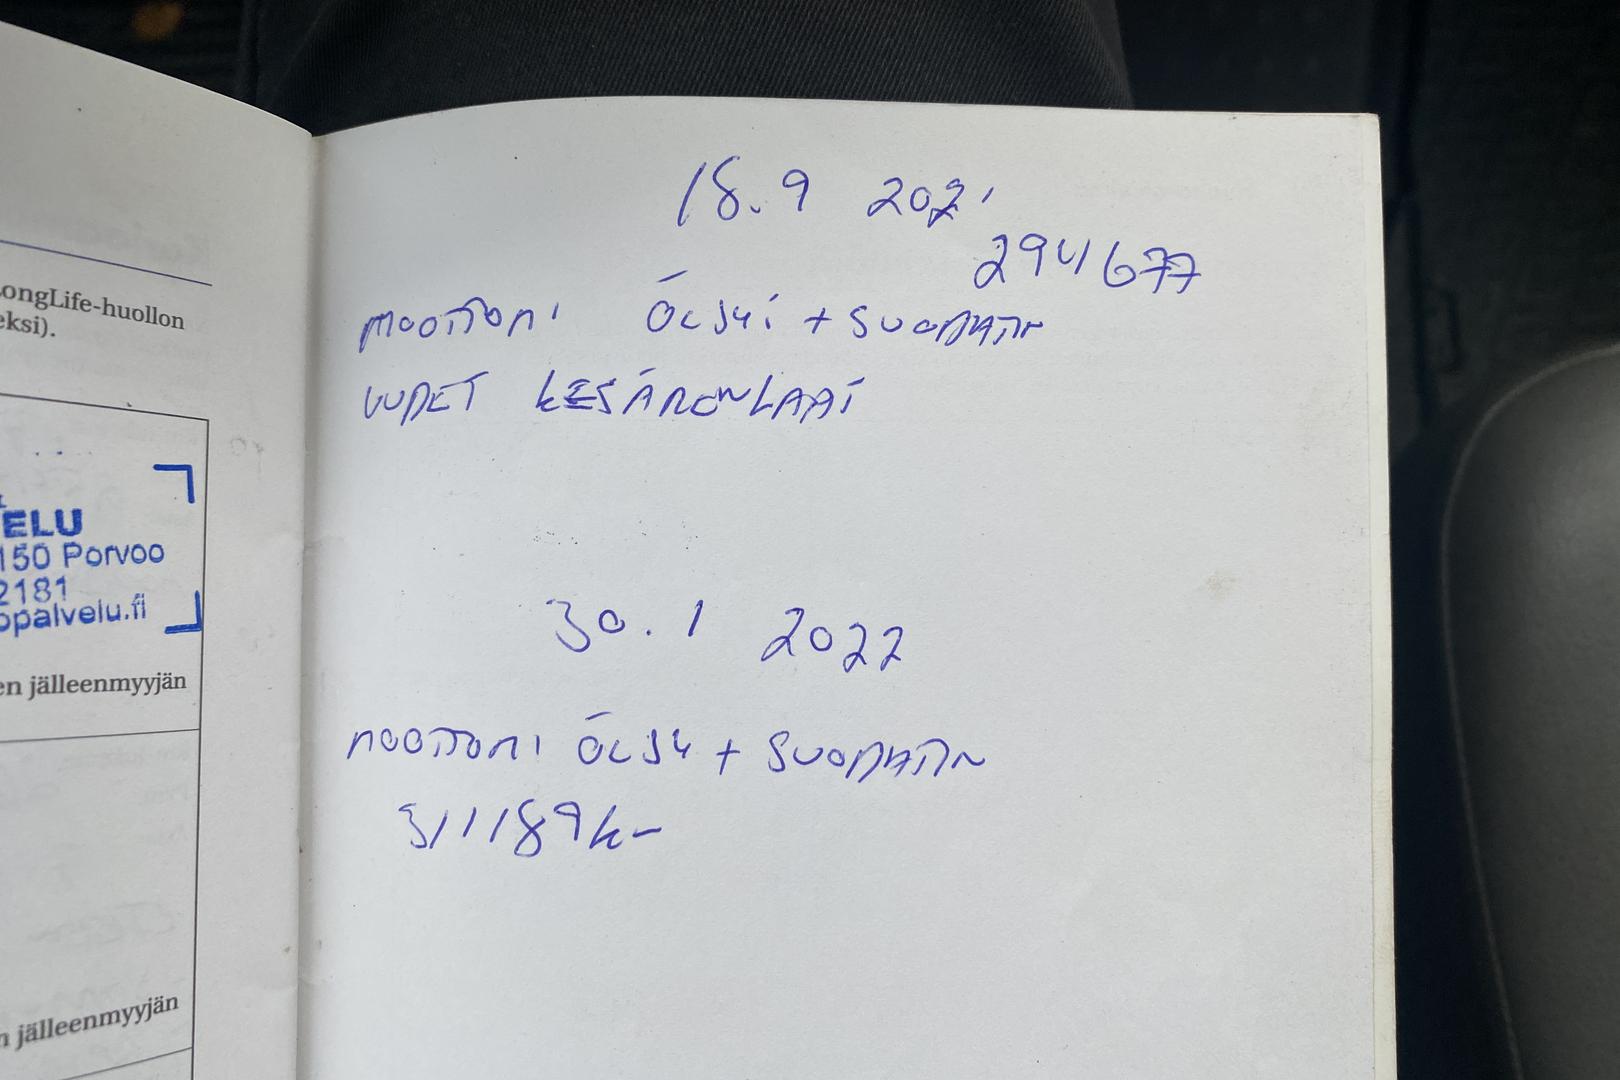 ongLife-huollon
eksi).
ELU
150 Porvoo
2181
opalvelu.fi
en jälleenmyyjän
n jälleenmyyjän
18.9 2021
294677
MOOTTORI ÖLJYI + SUODATIN
UUDET KESÄRENKAAT
30.1 2022
MOOTTORI ÖLJY + SUODATIN
311189km